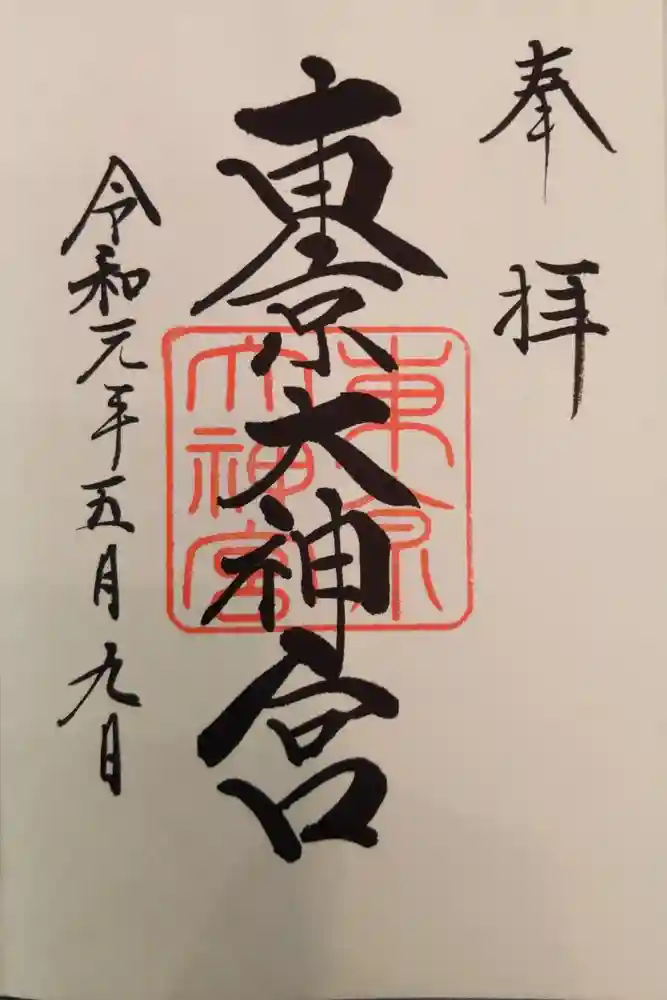 奉拝
東京大神宮
令和元年五月九日
東京
大神宮